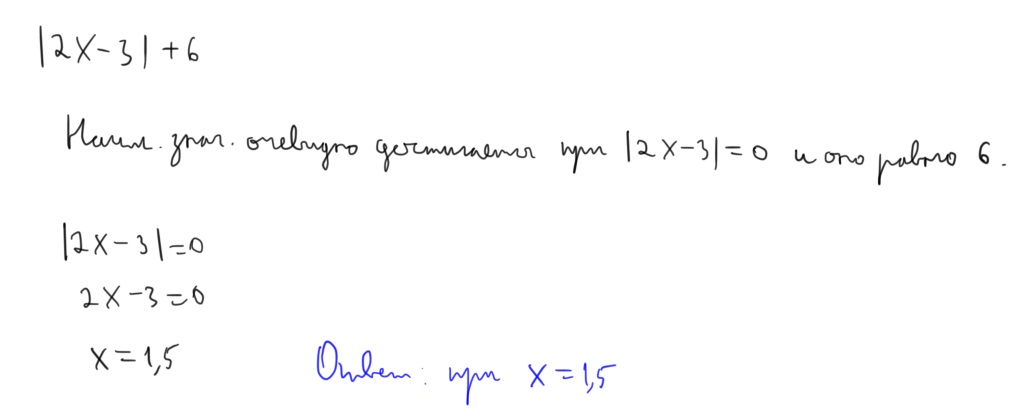 |2x-3|+6
Наим. знач. очевидно достигается при |2x-3|=0 и оно равно 6.
|2x-3|=0
2x-3=0
x=1,5
Ответ: при x=1,5